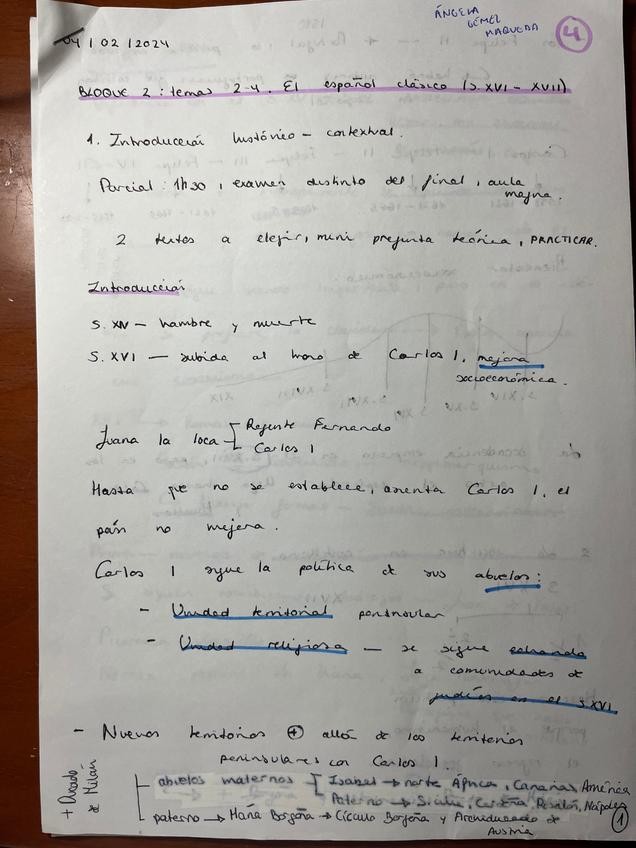 ÁNGELA
GÉMEZ
MAQUEDA
4
04 / 02 / 2024
BLOQUE 2 : temas 2-4. El español clásico (s. XVI - XVII)
1. Introducción histórico - contextual.
Parcial : 1h30 , examen distinto del final , aula
magna.
2 textos a elegir, mini pregunta teórica , PRACTICAR.
Introducción
S. XIV - hambre y muerte
S. XVI — subida al trono de Carlos I, mejora
socioeconómica.
Juana la loca
Regente Fernando
Carlos I
Hasta que no se establece, asienta Carlos I, el
país no mejora.
Carlos I sigue la política de sus abuelos:
- Unidad territorial peninsular
- Unidad religiosa — se sigue echando
a comunidades de
judíos en el s XVI
- Nuevos territorios + allá de los territorios
peninsulares con Carlos I.
+ Ducado de Milán
abuelos maternos
Isabel → norte África, Canarias, América
Paterno → Sicilia, Cerdeña, Rosellón, Nápoles
paterno → María Borgoña → Círculo Borgoña y Archiducado de
Austria
1